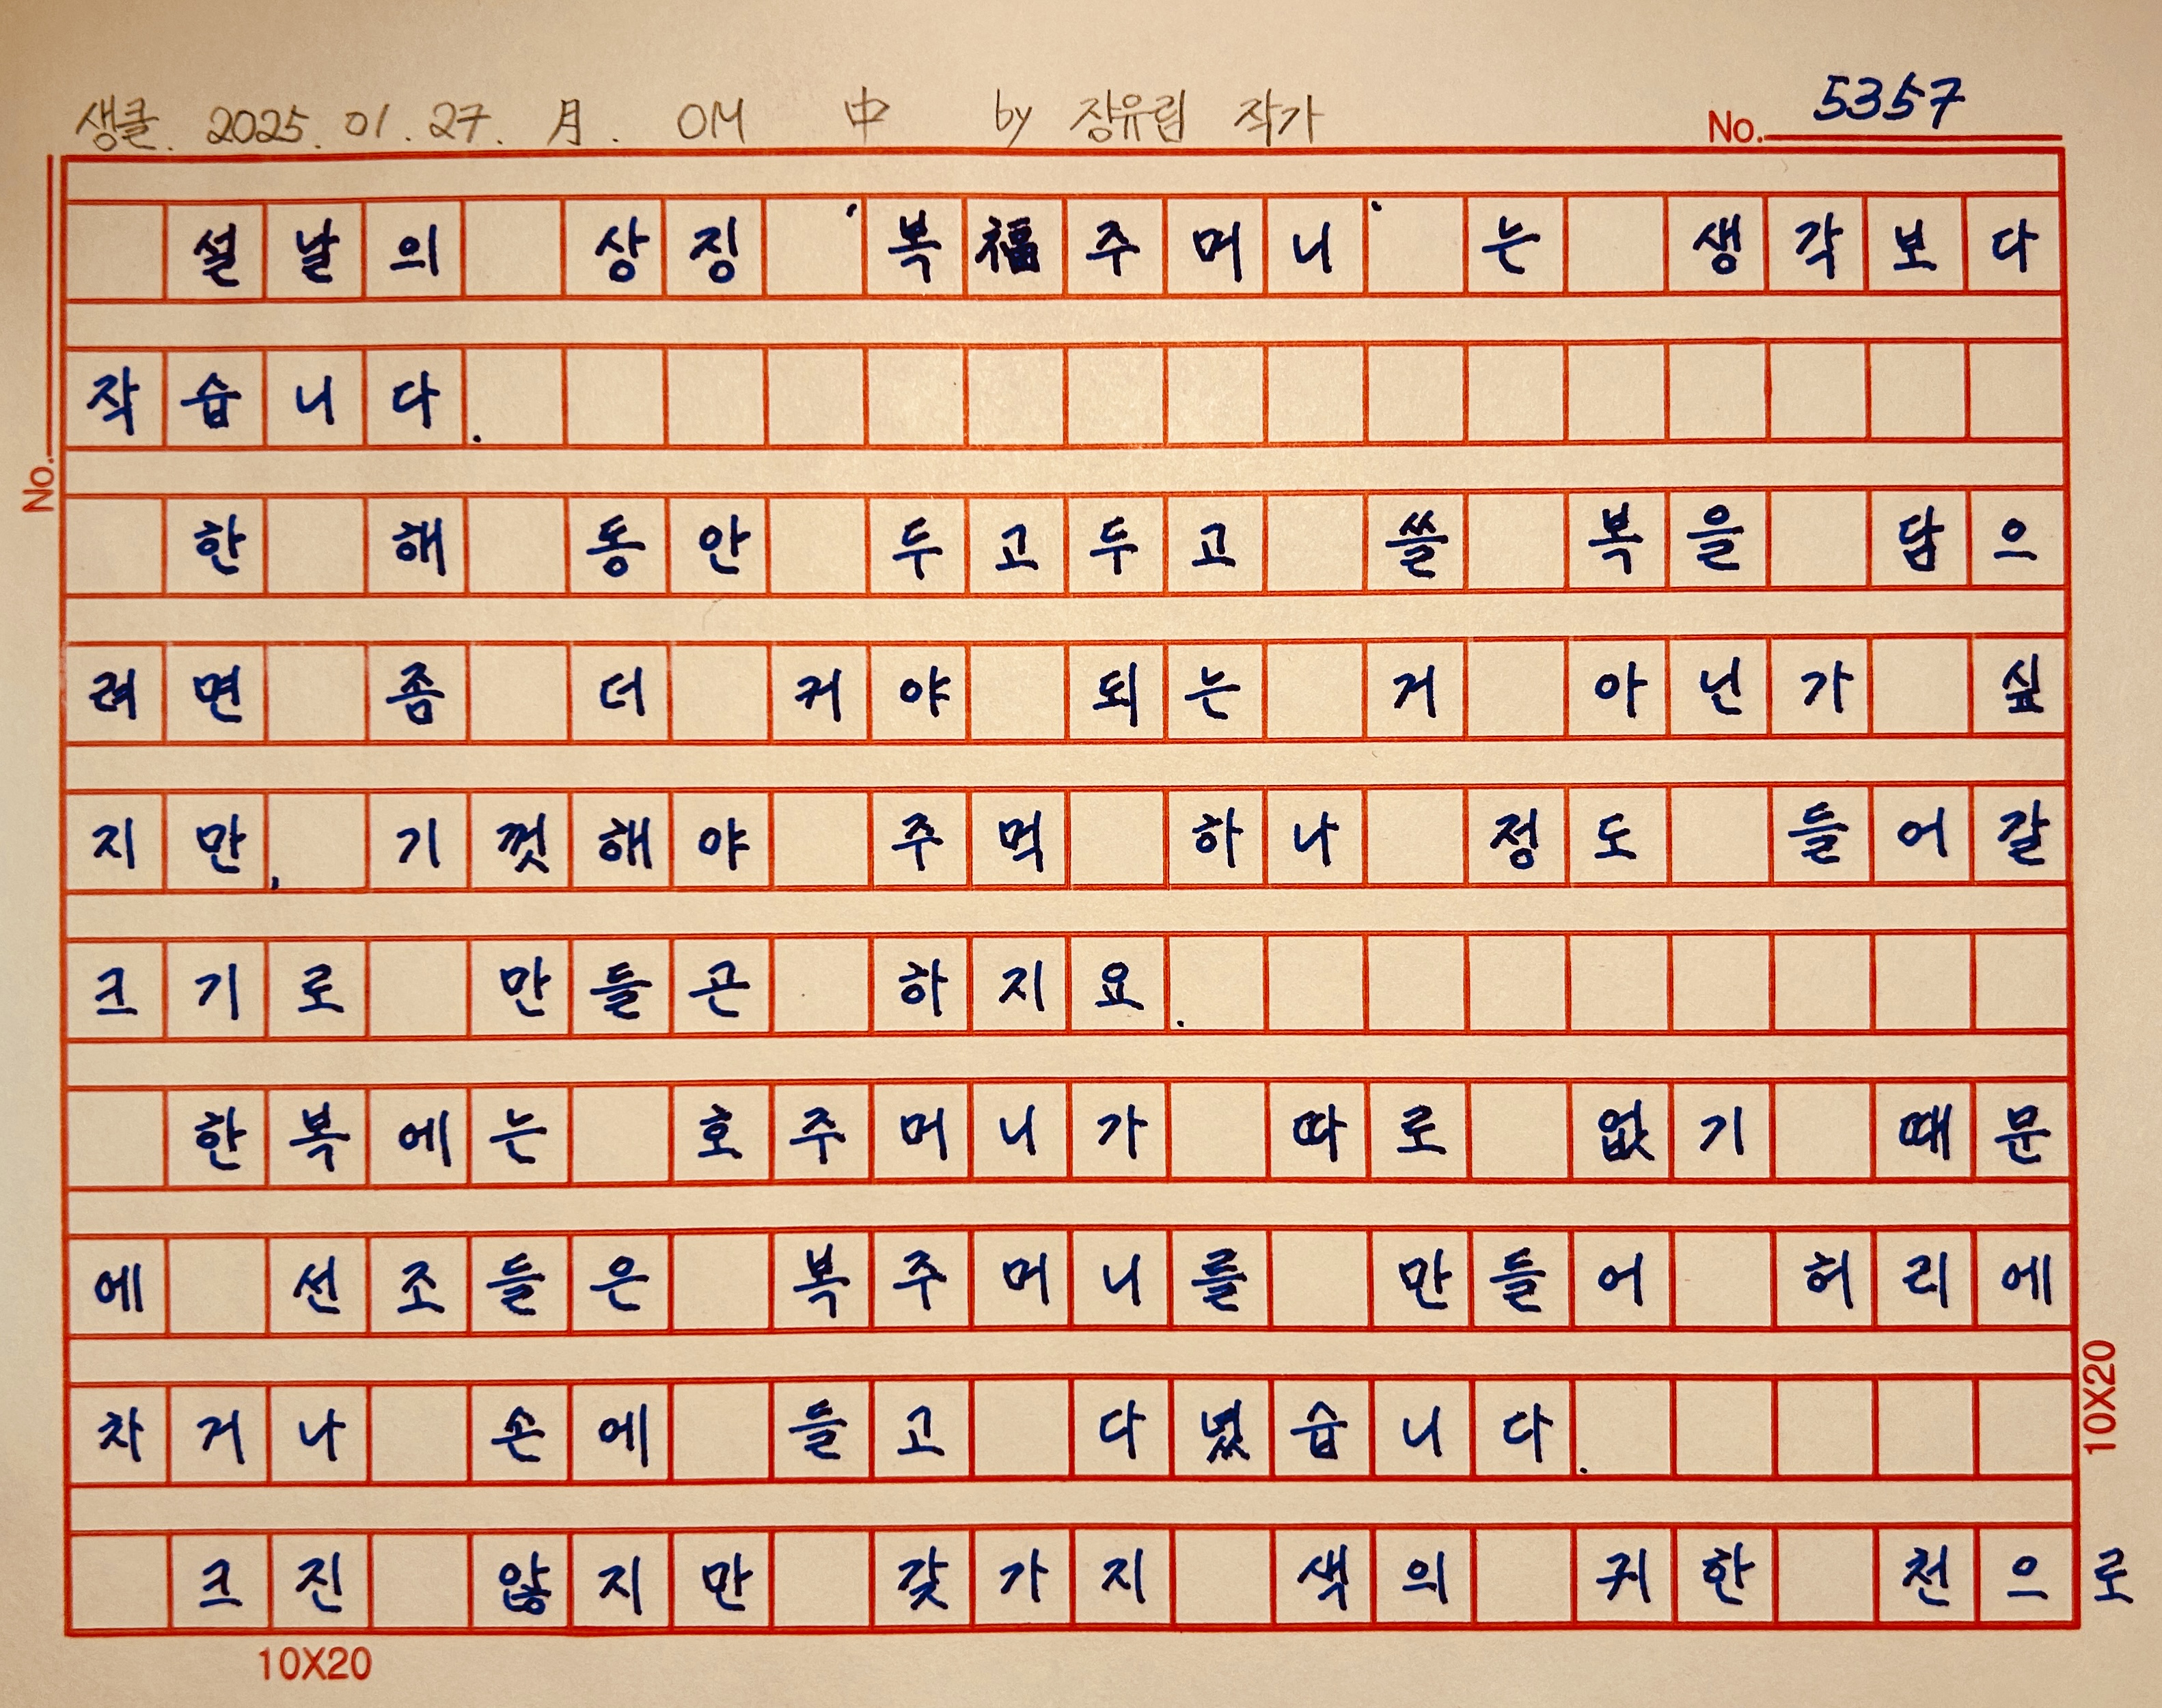 생클. 2025. 01. 27. 月. OM 中 by 장유림 작가
No. 5357
설날의 상징 '복福주머니'는 생각보다
작습니다.
No.
한 해 동안 두고두고 쓸 복을 담으
려면 좀 더 커야 되는 거 아닌가 싶
지만, 기껏해야 주먹 하나 정도 들어갈
크기로 만들곤 하지요.
한복에는 호주머니가 따로 없기 때문
에 선조들은 복주머니를 만들어 허리에
차거나 손에 들고 다녔습니다.
10X20
크진 않지만 갖가지 색의 귀한 천으로
10X20